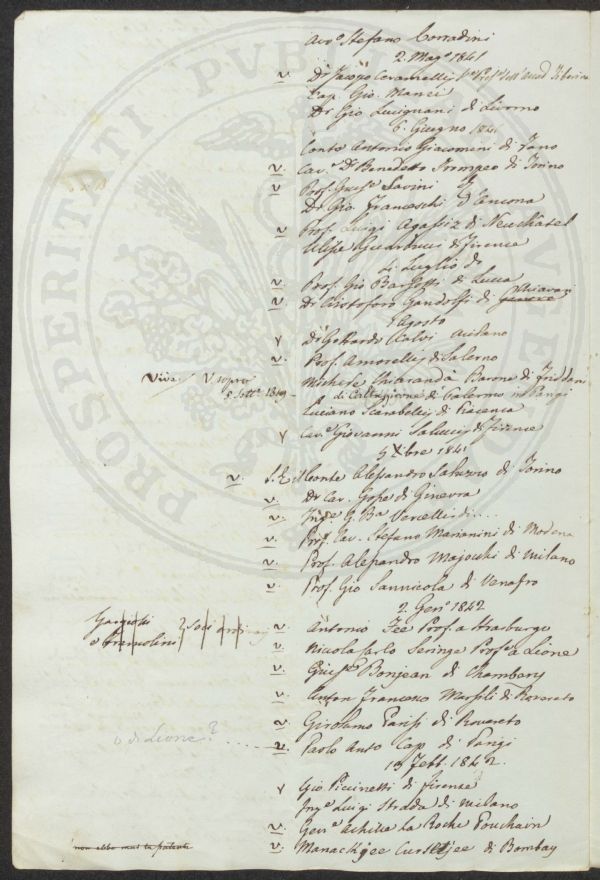 Avv.º Stefano Corradini
2. Magº 1841
v. Dr Jacopo
Cap. Gio. Manzi
Dr Gio. Lucignani di Livorno
6. Giugno 1841
Conte Antonio Giacomini di Fano
v. Cav.e Dr Benedetto Trompeo di Torino
v Prof. Gius.e Savini
Dr Gio. Franceschi d'Ancona
v Prof. Luigi Agassiz di Neuchatel
Ulisse Guarducci di Firenze
4 Luglio do
v. Prof. Gio Barsotti di Lucca
v. Dr Cristoforo Gandolfi di Genova Chiavari
Agosto
v Dr Gottardo Calvi Milano
v. Prof. Amorelli di Salerno
Viva V sopra Michele Chiarandà Barone di Friddani
5 Sett.e 1849 di Caltagirone di Palermo in Parigi
Luciano Scarabelli di Piacenza
v Cav.e Giovanni Salucci di Firenze
5 Xbre 1841
v. S. E. il Conte Alessandro Saluzzo di Torino
v. Dr Cav. Gosse di Ginevra
v. Ing.e G. Ba Vercelli di...
v. Prof. Cav. Stefano Marianini di Modena
v. Prof. Alessandro Majocchi di Milano
v. Prof. Gio Sannicola di Venafro
2. Gen.º 1842
Gargiolli 2 Soci v. Antonio Fée Prof. a Strasburgo
e Tremolini v. Nicola Carlo Seringe Prof.e a Lione
v. Gius.e Bonjean di Chambery
v. Anton Francesco Marsili di Rovereto
v. Girolamo Parisi di Rovereto
o di Lione? ..... v. Paolo Anto Cap di Parigi
13 Febb. 1842.
v Gio Piccinetti di Firenze
Ing.e Luigi Strada di Milano
v. Gen.e Achille la Roche Pouchain
non ebbe mai la patente v. Manackjee Cursetjee di Bombay
PROSPERITATI PUBLICAE